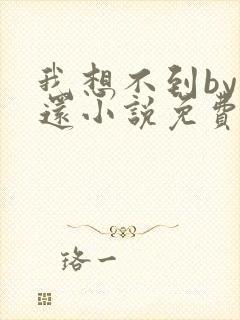 我想不到by
還小說免費
珞一